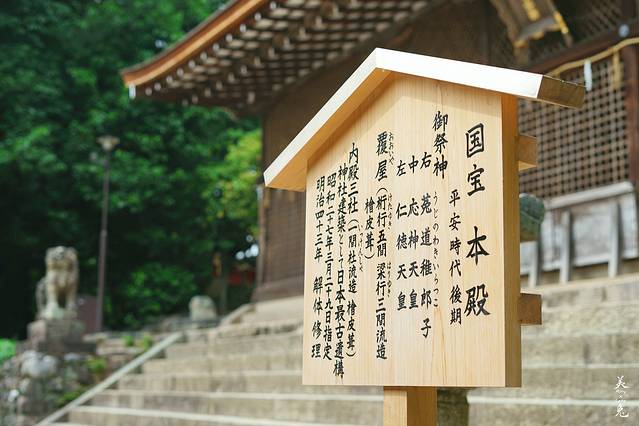 国宝 本殿
平安時代 後期
御祭神
右 菟道稚郎子
うじのわきいらつこ
中 応神天皇
左 仁徳天皇
覆屋（桁行五間 梁行三間流造
おおいや
けたゆき
はりゆき
檜皮葺）
内殿三社（一間社流造 檜皮葺）
神社建築として日本最古遺構
昭和二十七年三月二十九日指定
明治四十三年 解体修理